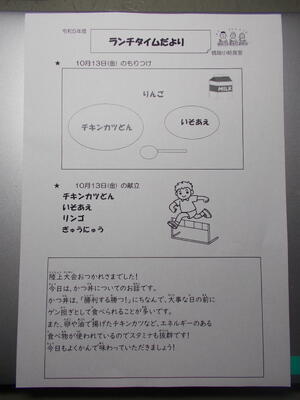 令和5年度
ランチタイムだより
★ 10月13日(金) のもりつけ
りんご
MILK
チキンカツどん
いそあえ
★ 10月13日(金) の献立
チキンカツどん
いそあえ
リンゴ
ぎゅうにゅう
陸上大会おつかれさまでした!
今日は、かつ丼についてのお話です。
かつ丼は、「勝利する勝つ!」にちなんで、大事な日の前に
ゲン担ぎとして食べられることが多いです。
また、卵や油で揚げたチキンカツなど、エネルギーのある
食べ物が使われているのでスタミナも抜群です!
今日もよくかんで味わっていただきましょう!